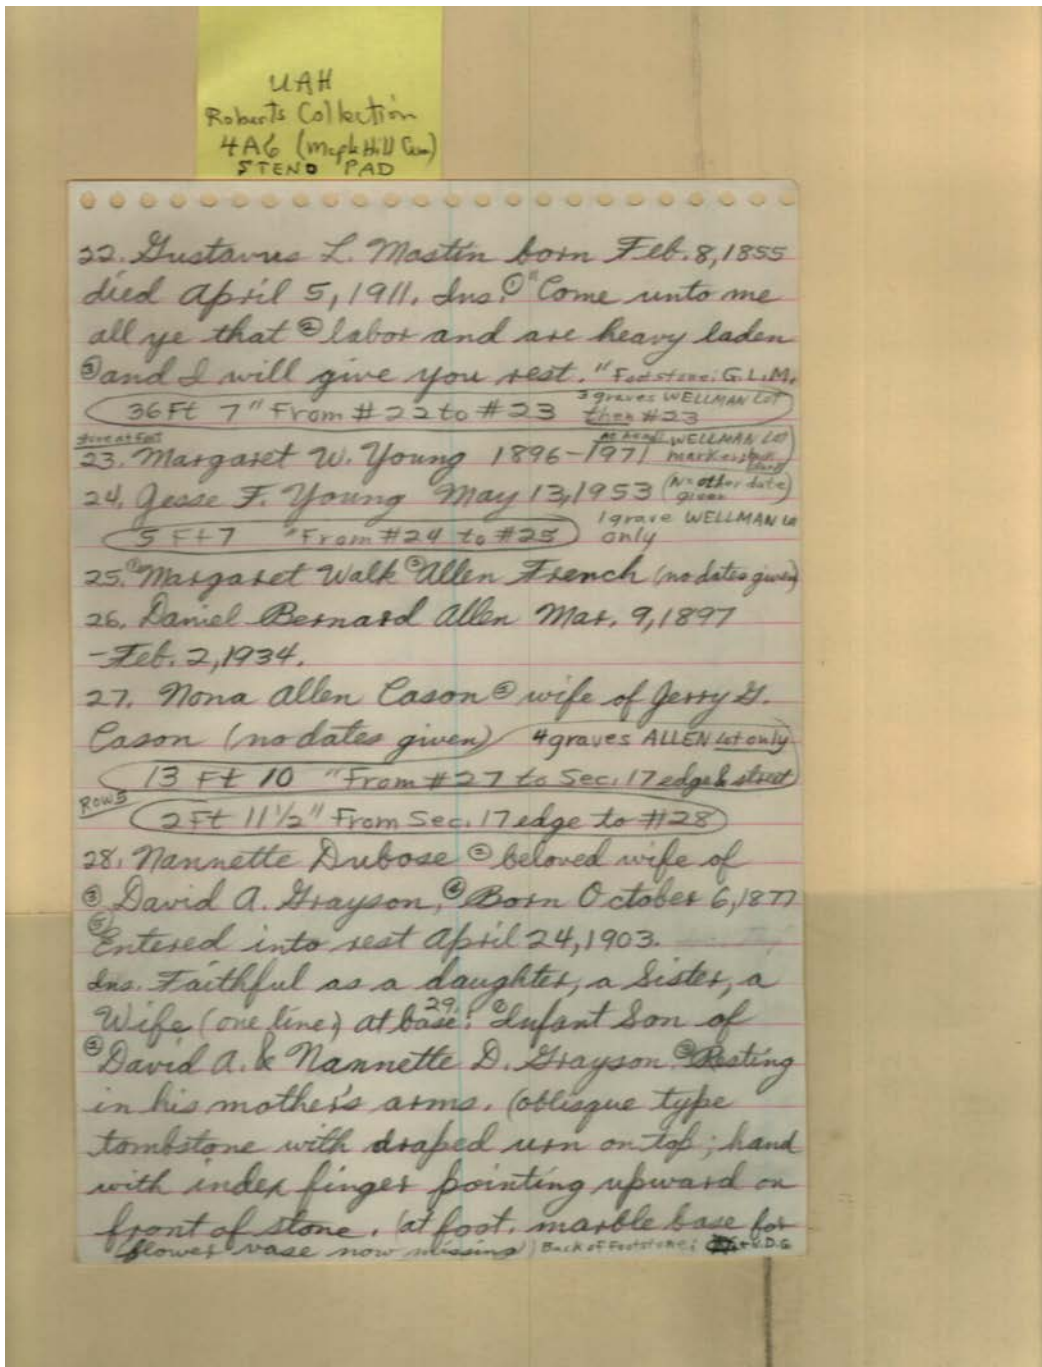 UAH
Roberts Collection
4A6 (Maple Hill Cem)
STENO PAD
22. Gustavus L. Mastin born Feb. 8, 1855
died April 5, 1911. Ins. ① "Come unto me
all ye that ② labor and are heavy laden
③ and I will give you rest." Footstone: G.L.M.
36 Ft 7" From #22 to #23 3 graves WELLMAN Lot
then #23
at foot
at head WELLMAN Lot
23. Margaret W. Young 1896-1971 marker
24. Jesse F. Young May 13, 1953 (No other date
given)
1 grave WELLMAN Lo
5 Ft 7 "From #24 to #25 only
25. ① Margaret Walk ② Allen French (no dates given)
26. Daniel Bernard Allen Mar. 9, 1897
-Feb. 2, 1934.
27. Nona Allen Cason ② wife of Jerry G.
Cason (no dates given) 4 graves ALLEN Lot only
13 Ft 10 "From #27 to Sec. 17 edge & street
Row 5
2 Ft 11 1/2" From Sec. 17 edge to #28
28. Nannette Dubose ② beloved wife of
③ David A. Grayson, ④ Born October 6, 1877
⑤ Entered into rest April 24, 1903.
Ins. Faithful as a daughter, a Sister, a
Wife (one line) at base: 29. Infant Son of
② David A. & Nannette D. Grayson ③ Resting
in his mother's arms. (oblisque type
tombstone with draped urn on top; hand
with index finger pointing upward on
front of stone. (at foot. marble base for
flower vase now missing) Back of Footstone: N.D.G